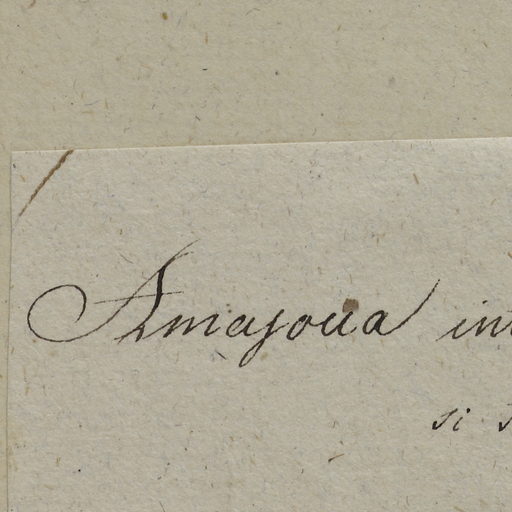 Amajoua int
si s